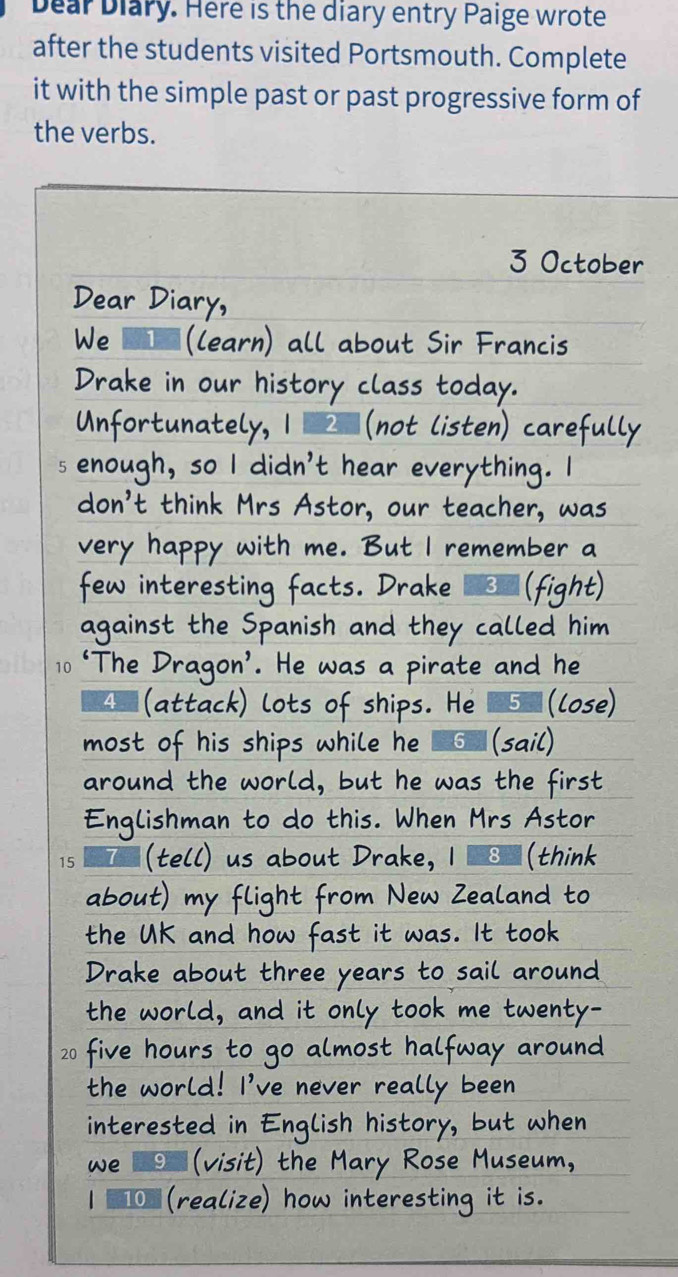 Dear Diary. Here is the diary entry Paige wrote
after the students visited Portsmouth. Complete
it with the simple past or past progressive form of
the verbs.
3 October
Dear Diary,
We 1 (learn) all about Sir Francis
Drake in our history class today.
Unfortunately, I 2 (not listen) carefully
5 enough, so I didn't hear everything. I
don't think Mrs Astor, our teacher, was
very happy with me. But I remember a
few interesting facts. Drake 3 (fight)
against the Spanish and they called him
10 'The Dragon'. He was a pirate and he
4 (attack) lots of ships. He 5 (lose)
most of his ships while he 6 (sail)
around the world, but he was the first
Englishman to do this. When Mrs Astor
15 7 (tell) us about Drake, I 8 (think
about) my flight from New Zealand to
the UK and how fast it was. It took
Drake about three years to sail around
the world, and it only took me twenty-
20 five hours to go almost halfway around
the world! I've never really been
interested in English history, but when
we 9 (visit) the Mary Rose Museum,
I 10 (realize) how interesting it is.